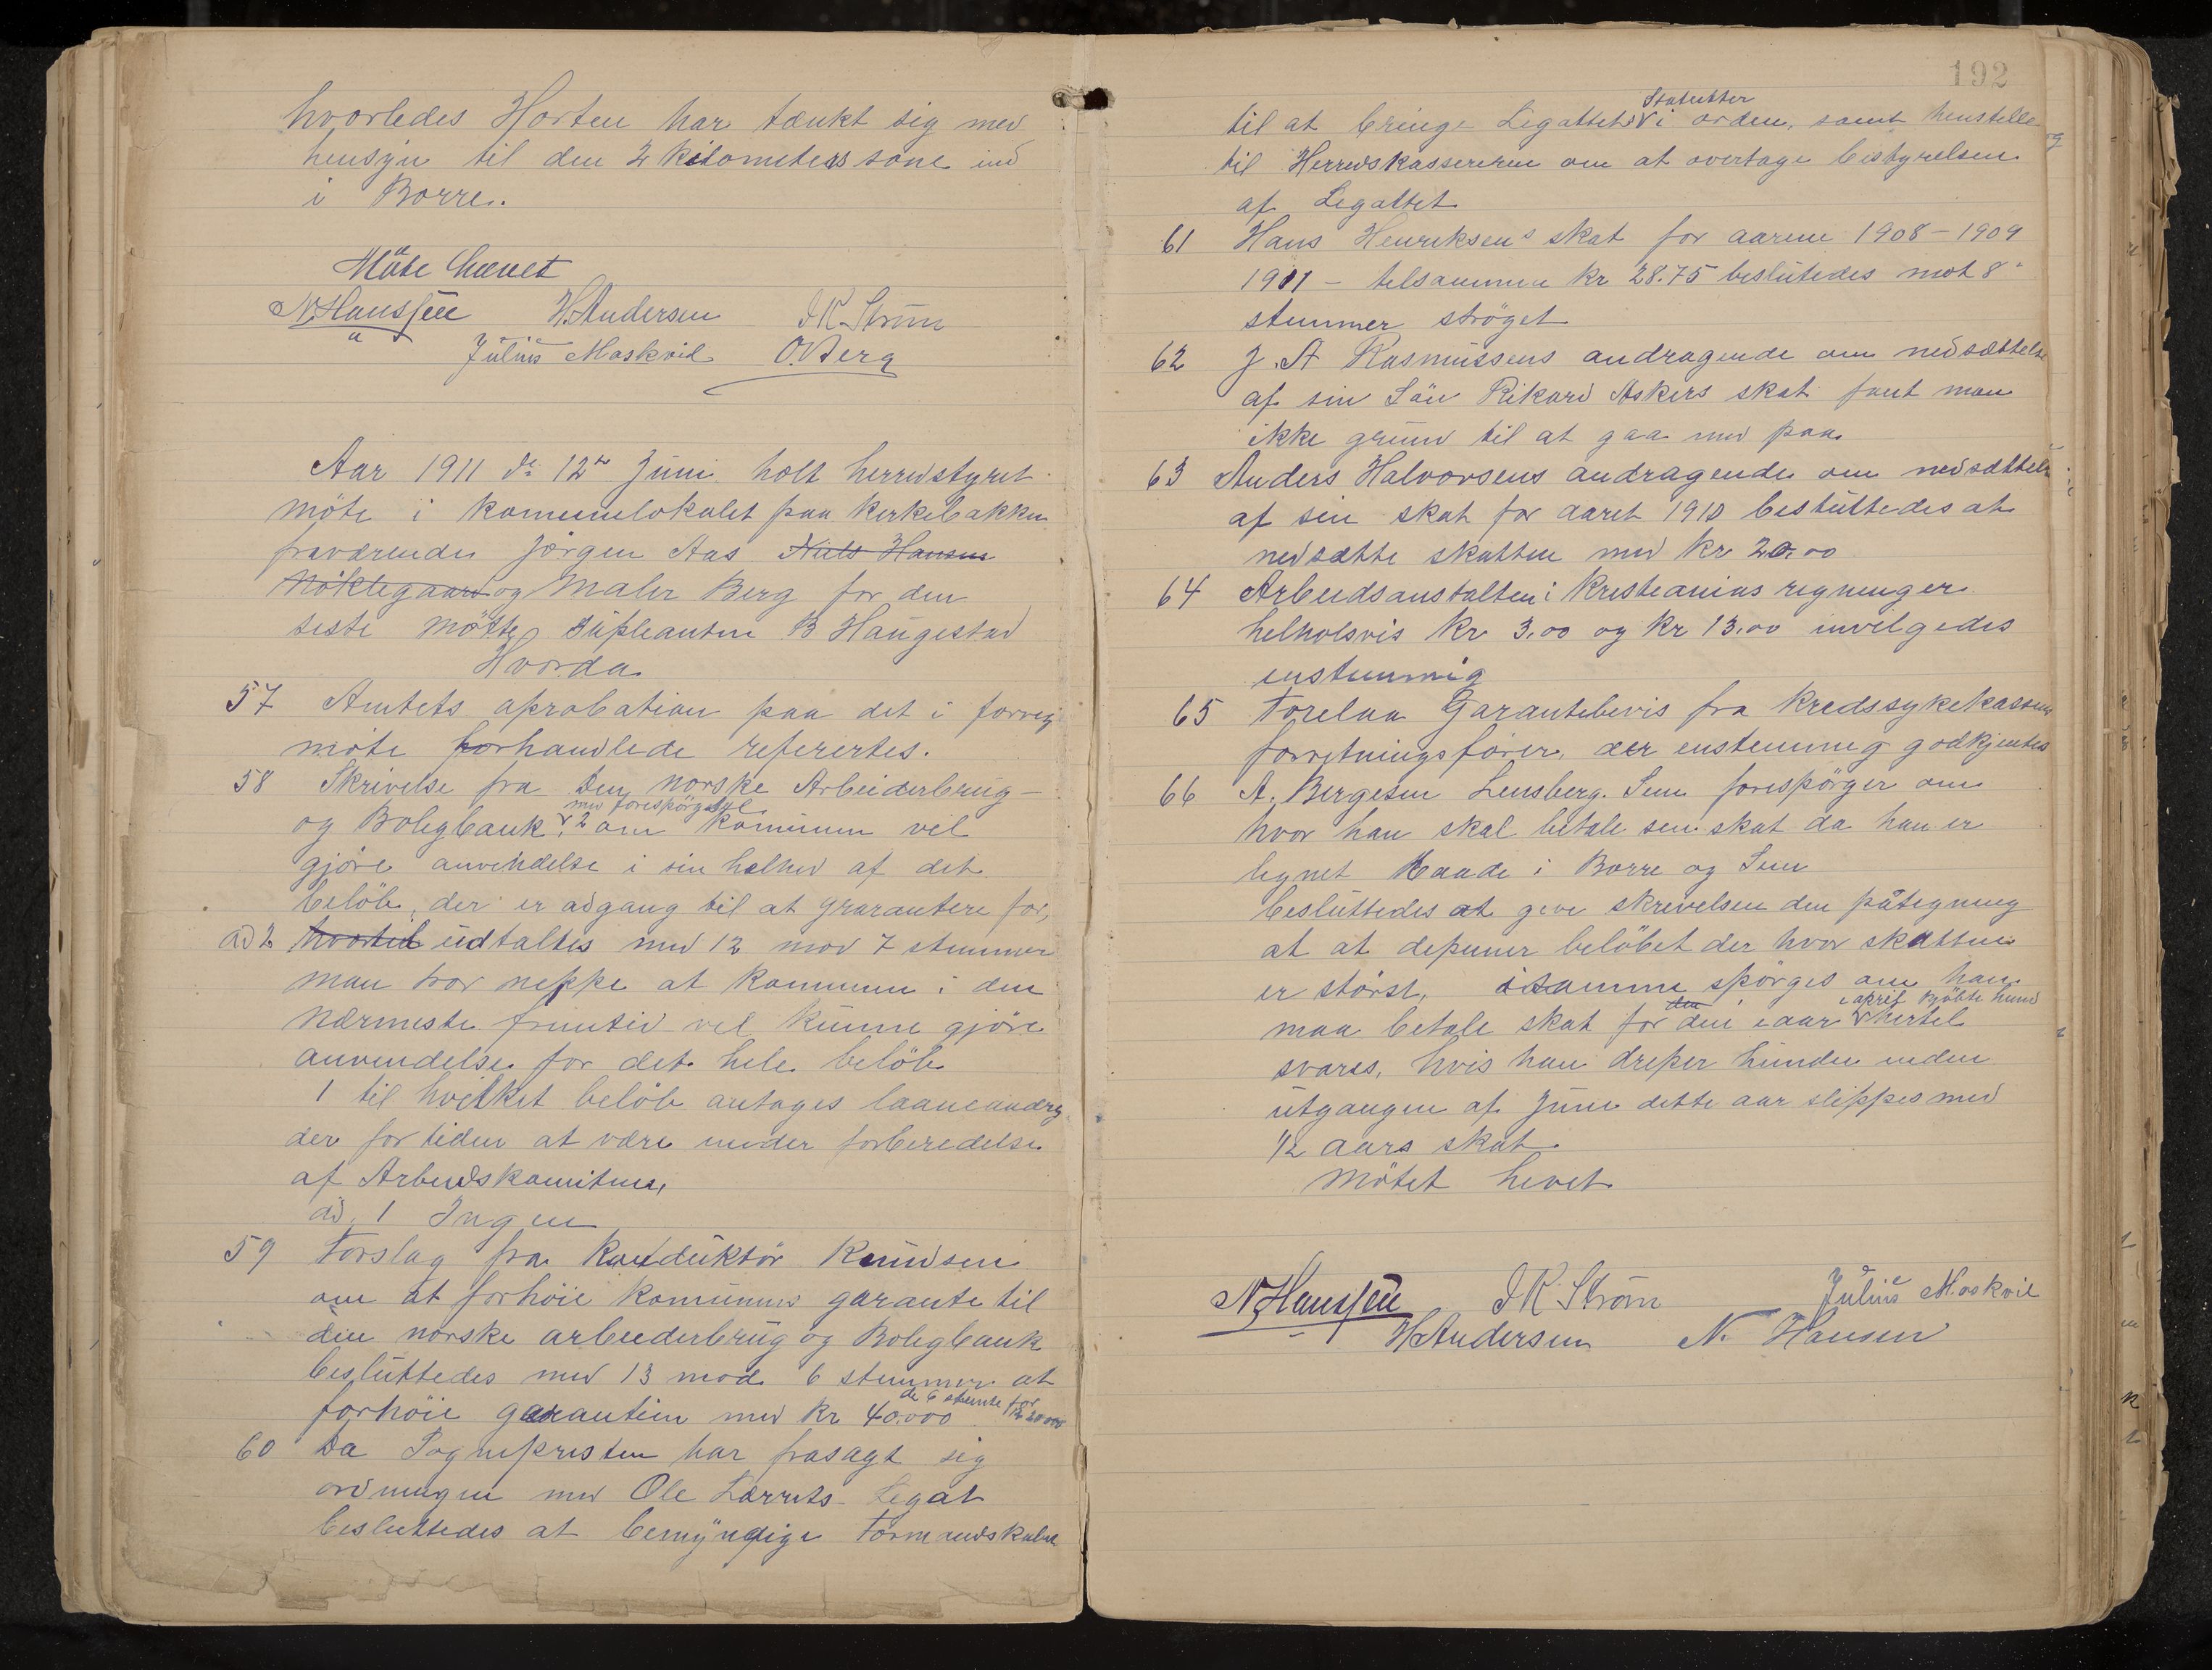 hvorledes Horten har tænkt sig med
hensyn til den 2 kilometers sone ind
i Borre.
Möte hævet
N. Hanssen H. Andersen J K Strøm
Julius Moskvil O. Berg
Aar 1911 dn 12te Juni holt herredstyret
möte i komunelokalet paa Kirkebakken
fraværende Jørgen Aas Niels Hansen
Nöklegaard og Maler Berg for den
siste mötte supleanten B Haugestad
Hvorda
57 Amtets aprobation paa det i forrig
möte forhandlede refertes.
58 Skrivelse fra Den norske Arbeiderbrug-
og Boligbank med forespörgsel 2 om komunen vil
gjöre anvendelse i sin helhed af det
belöb, der er adgang til at grarantere for,
ad 2 hvortil udtaltes med 12 mod 7 stemmer
man tror neppe at kommunen i den
nærmeste fremtid vil kunne gjöre
anvendelse for det hele belöb
1 til hvilket belöb antages laaneandrg
der for tiden at være under forberedelse
af Arbeidskomiteen,
ad. 1 Ingen
59 Forslag fra Konduktör Knudsen
om at forhöie komunens garante til
den norske arbeiderbrug og Boligbank
besluttedes med 13 mod 6 stemmer at
forhöie garantien med kr 40.000 de 6 stemte for kr 20000
60 Da Sognepresten har frasagt sig
ordningen med Ole Legat
besluttedes at bemyndige Formandskabet
192
til at bringe Legattets Statutter i orden, samt henstille
til Herredskassereren om at overtage bestyrelsen
af Legattet
61 Hans Henriksens skat for aarene 1908 - 1909
1911 - tilsammen kr 28.75 beslutedes mot 8
stemmer ströget
62 J. A Rasmussens andragende om nedsættelse
af sin Sön Rikard Askers skat fant man
ikke grund til at gaa med paa
63 Anders Halvorsens andragende om nedsættelse
af sin skat for aaret 1910 besluttedes at
nedsætte skatten med kr 20.00
64 Arbeidsanstalten i Kristianias regninger
helholsvis kr 3.00 og kr 13.00 invilgedes
enstemmig
65 Forelaa Garantibevis fra Kredssykekassens
forretningsförer, der enstemmig godkjentes
66 A. Bergesen Lensberg. Sem forespörger om
hvor han skal betale sin skat da han er
lignet baade i Borre og Sem
besluttedes at give skrivelsen den påtegning
at at deponer belöbet der hvor skatten
er störst, isamme spörges om han
maa betale skat for den den i aar i april kjöbte hund hertil
svares, hvis han dreper hunden inden
utgangen af Juni dette aar slippes med
1/2 aars skat
Mötet hevet
N. Hanssen J K Strøm Julius Moskvil
H Andersen N. Hansen